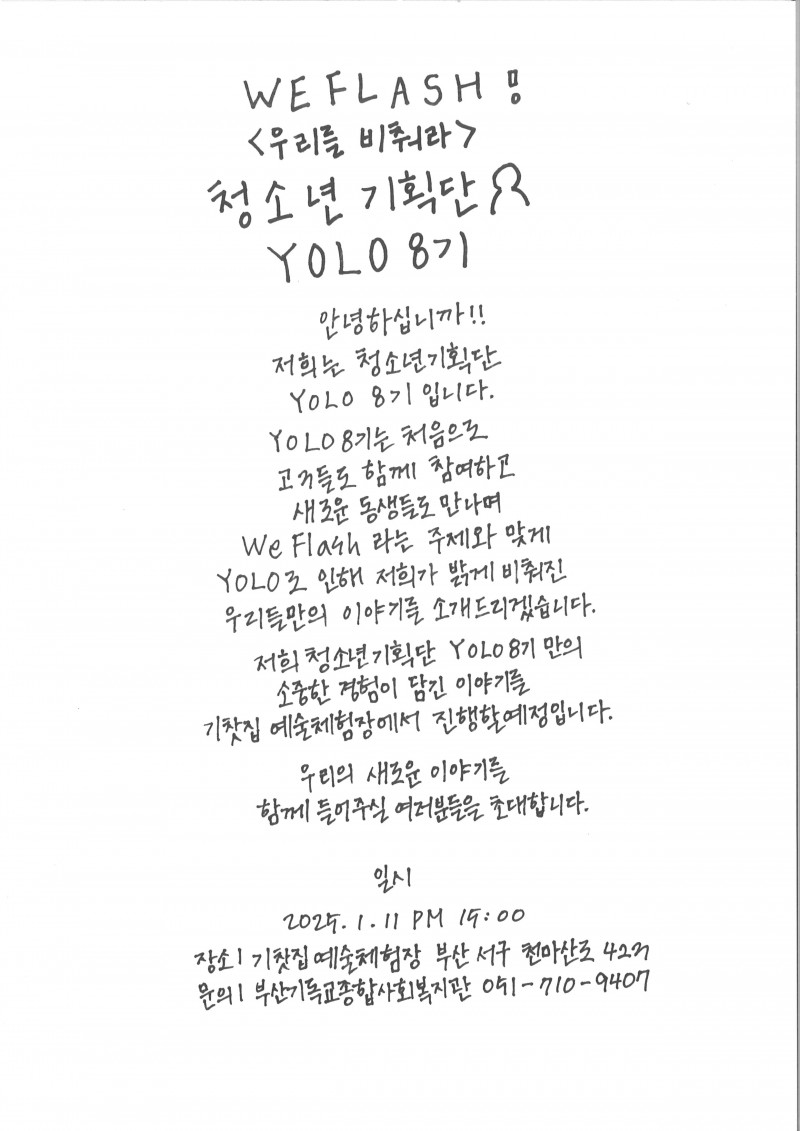 WE FLASH !
<우리를 비춰라>
청소년 기획단
YOLO 8기
안녕하십니까!!
저희는 청소년기획단
YOLO 8기 입니다.
YOLO 8기는 처음으로
고3들도 함께 참여하고
새로운 동생들도 만나며
We Flash 라는 주제와 맞게
YOLO로 인해 저희가 밝게 비춰진
우리들만의 이야기를 소개드리겠습니다.
저희 청소년기획단 YOLO 8기 만의
소중한 경험이 담긴 이야기를
기찻집 예술체험장에서 진행할예정입니다.
우리의 새로운 이야기를
함께 들어주실 여러분들을 초대합니다.
일시
2025. 1. 11 PM 15:00
장소 | 기찻집 예술체험장 부산 서구 천마산로 427
문의 | 부산기독교종합사회복지관 051-710-9407